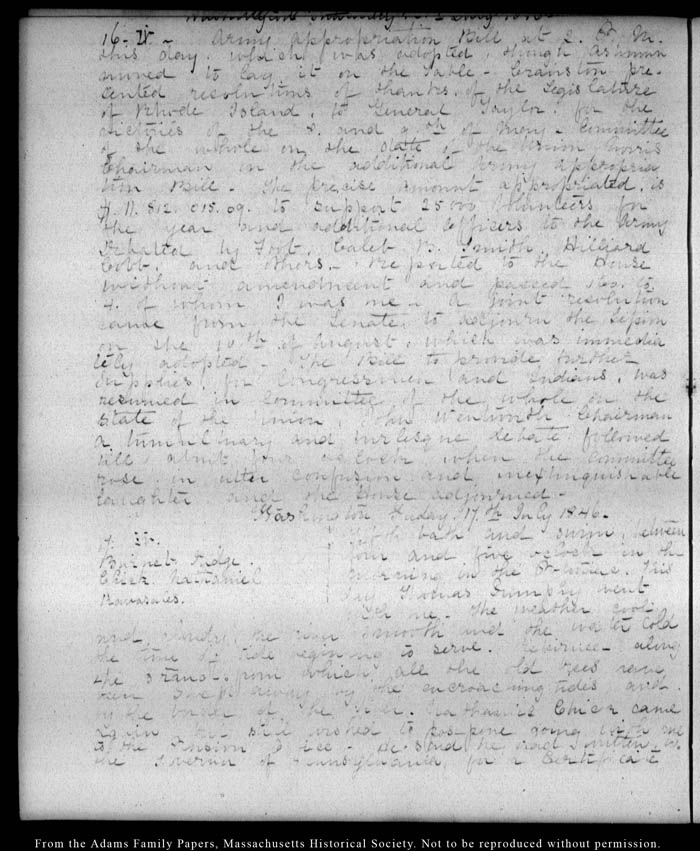 16. IV. Army appropriation Bill at 2. P.M.
this day, which was adopted, though Ashmun
moved to lay it on the table – Cranston pre-
sented resolutions of thanks of the Legislature
of Rhode Island, to General Taylor for the
victories of the 8. and 9.th of May – Committee
of the whole on the state of the Union
Chairman on the additional Army appropria
tion Bill. The precise amount appropriated, is
11.812.015.09. to support 25000 Volunteers for
the year and additional Officers to the Army
Debated by Foot, Caleb B. Smith, Hilliard
Cobb, and others – Reported to the House
without amendment and passed to
4. of whom I was one – A joint resolution
came from the Senate, to adjourn the Session
on the 10.th of August, which was immedia
tely adopted – The Bill to provide further
supplies for Congressmen and Indians, was
resumed in Committee of the whole on the
State of the Union, John Wentworth Chairman
a tumultuary and burlesque debate followed
till about four o'clock when the Committee
rose in utter confusion and inextinguishable
laughter and the House adjourned –
Washington Friday 17.th July 1846.
17. IV.
bath and swim, between
Burnet Judge.
four and five o'clock in the
Chier. Nathaniel
morning in the Potomac. This
day Thomas went
with me. The weather cool
and cloudy, the river smooth and the water cold
the time of tide beginning to serve. Returned along
the strand from which all the old trees have
been swept away by the encroaching tides and
by the border of the river. Nathaniel Chier came
again but still wished to postpone going with me
to the He said he had written to
the Governor of Pennsylvania, for a Certificate
From the Adams Family Papers, Massachusetts Historical Society. Not to be reproduced without permission.